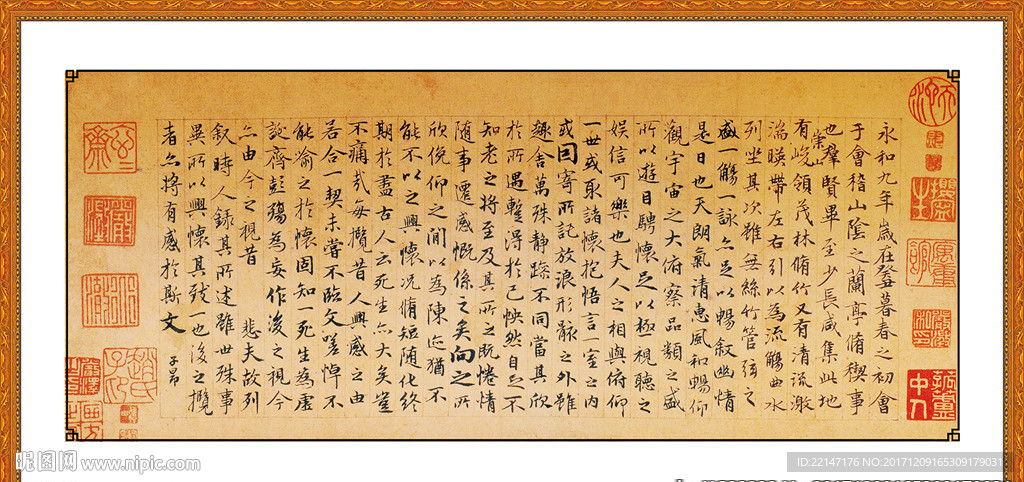 永和九年歲在癸丑暮春之初會
于會稽山陰之蘭亭脩稧事
也羣賢畢至少長咸集此地
有崇山峻領茂林脩竹又有清流激
湍暎帶左右引以為流觴曲水
列坐其次雖無絲竹管弦之
盛一觴一詠亦足以暢叙幽情
是日也天朗氣清惠風和暢仰
觀宇宙之大俯察品類之盛
所以遊目騁懷足以極視聽之
娛信可樂也夫人之相與俯仰
一世或取諸懷抱悟言一室之內
或因寄所託放浪形骸之外雖
趣舍萬殊静躁不同當其欣
於所遇蹔得於己怏然自足不
知老之將至及其所之既惓情
隨事遷感慨係之矣向之所
欣俛仰之間以為陳迹猶不
能不以之興懷況脩短隨化終
期於盡古人云死生亦大矣豈
不痛哉每攬昔人興感之由
若合一契未嘗不臨文嗟悼不
能喻之於懷固知一死生為虛
誕齊彭殤為妄作後之視今
亦由今之視昔 悲夫故列
叙時人錄其所述雖世殊事
異所以興懷其致一也後之攬
者亦將有感於斯文
子昂
趙氏子昂
昵图网 www.nipic.com
ID:22147176 NO:20171209165309179031